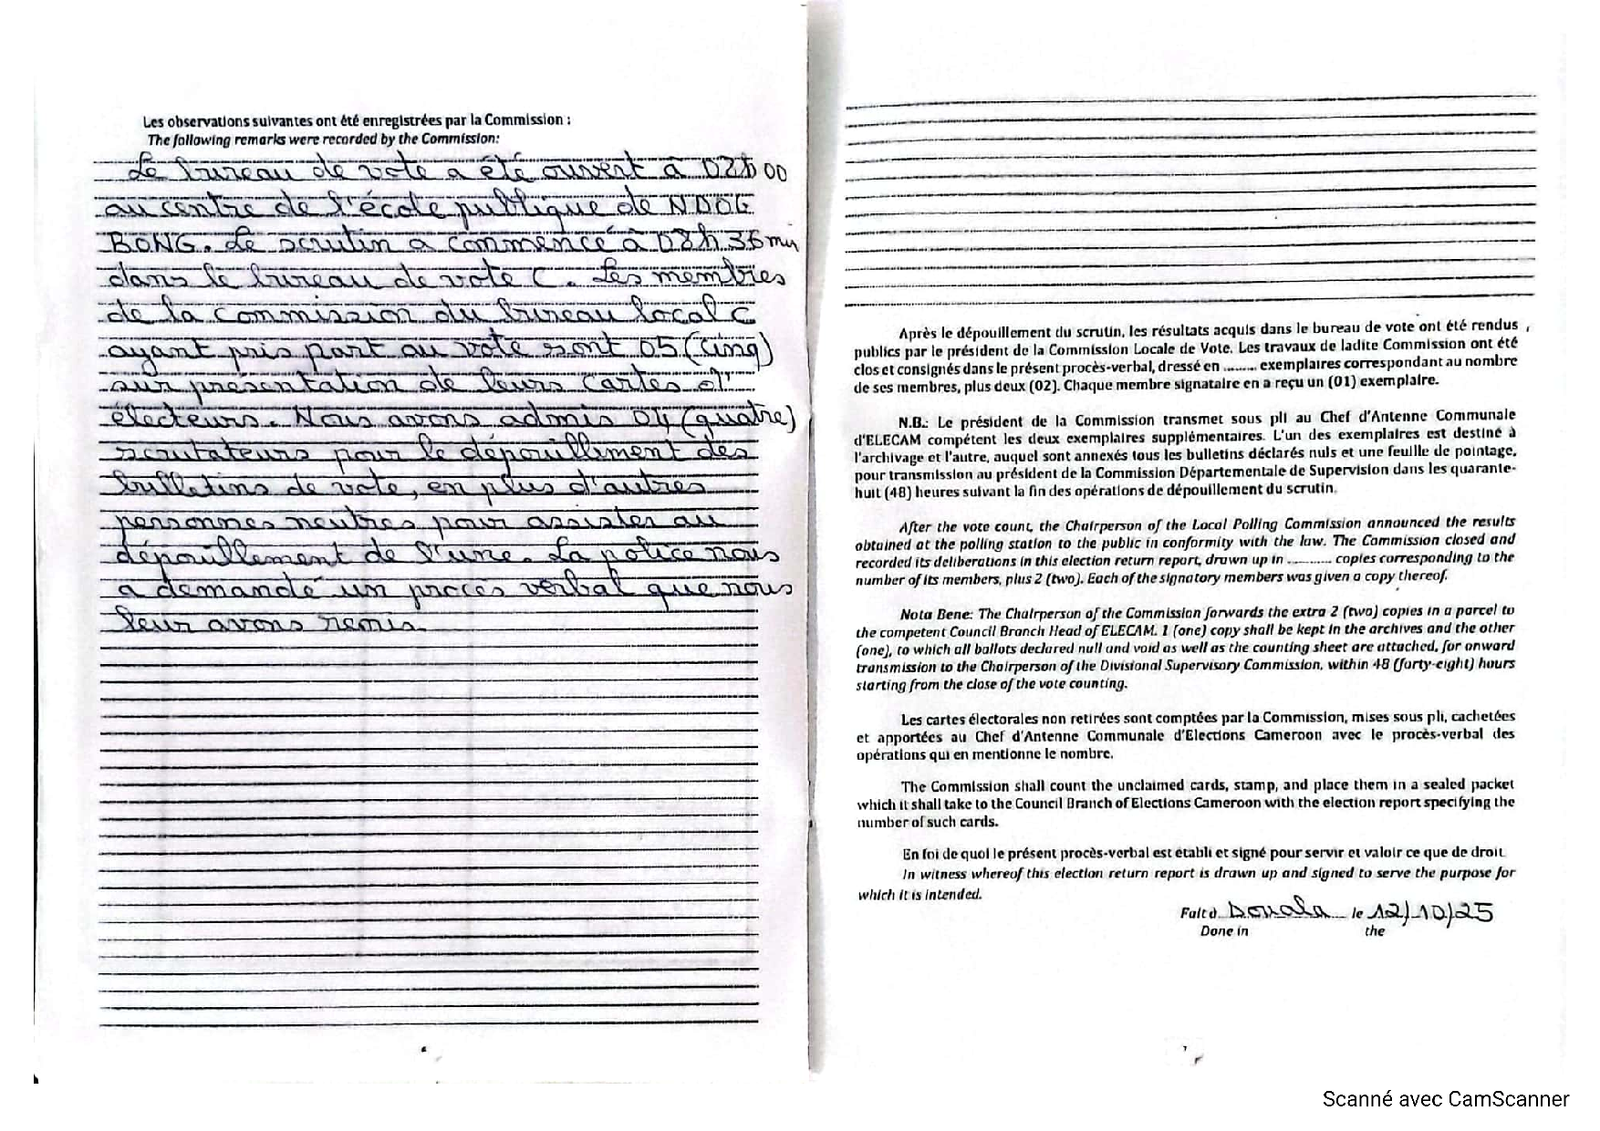 Les observations suivantes ont été enregistrées par la Commission :
The following remarks were recorded by the Commission:
Le bureau de vote a été ouvert à 00
au centre de l'école publique de NDOG
BONG. Le scrutin a commencé à 08h 36 mn
dans le bureau de vote C. Les membres
de la commission du bureau local C
ayant pris part au vote sont 05 (cinq)
sur présentation de leurs cartes d'
électeurs. Nous avons admis 04 (quatre)
scrutateurs pour le dépouillement des
bulletins de vote, en plus d'autres
personnes neutres pour assister au
dépouillement de l'urne. La police nous
a demandé un procès verbal que nous
leur avons remis.
Après le dépouillement du scrutin, les résultats acquis dans le bureau de vote ont été rendus
publics par le président de la Commission Locale de Vote. Les travaux de ladite Commission ont été
clos et consignés dans le présent procès-verbal, dressé en ......... exemplaires correspondant au nombre
de ses membres, plus deux (02). Chaque membre signataire en a reçu un (01) exemplaire.
N.B.: Le président de la Commission transmet sous pli au Chef d'Antenne Communale
d'ELECAM compétent les deux exemplaires supplémentaires. L'un des exemplaires est destiné à
l'archivage et l'autre, auquel sont annexés tous les bulletins déclarés nuls et une feuille de pointage,
pour transmission au président de la Commission Départementale de Supervision dans les quarante-
huit (48) heures suivant la fin des opérations de dépouillement du scrutin.
After the vote count, the Chairperson of the Local Polling Commission announced the results
obtained at the polling station to the public in conformity with the law. The Commission closed and
recorded its deliberations in this election return report, drawn up in ........... copies corresponding to the
number of its members, plus 2 (two). Each of the signatory members was given a copy thereof.
Nota Bene: The Chairperson of the Commission forwards the extra 2 (two) copies in a parcel to
the competent Council Branch Head of ELECAM. 1 (one) copy shall be kept in the archives and the other
(one), to which all ballots declared null and void as well as the counting sheet are attached, for onward
transmission to the Chairperson of the Divisional Supervisory Commission, within 48 (forty-eight) hours
starting from the close of the vote counting.
Les cartes électorales non retirées sont comptées par la Commission, mises sous pli, cachetées
et apportées au Chef d'Antenne Communale d'Elections Cameroon avec le procès-verbal des
opérations qui en mentionne le nombre.
The Commission shall count the unclaimed cards, stamp, and place them in a sealed packet
which it shall take to the Council Branch of Elections Cameroon with the election report specifying the
number of such cards.
En foi de quoi le présent procès-verbal est établi et signé pour servir et valoir ce que de droit.
In witness whereof this election return report is drawn up and signed to serve the purpose for
which it is intended.
Fait à Douala le 12/10/25
Done in the
Scanné avec CamScanner